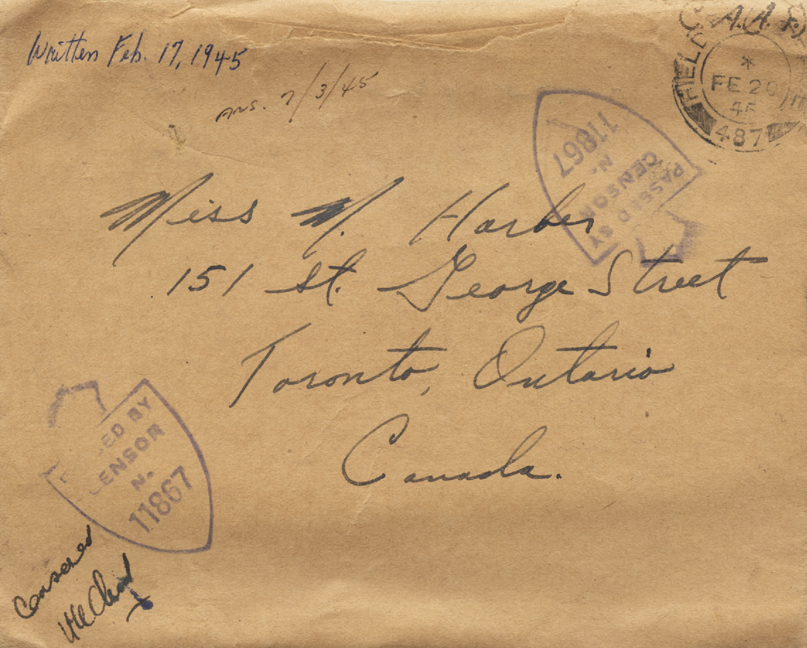 Written Feb. 17, 1945
ans. 7/3/45
FIELD
FE 20
45
487
PASSED BY
CENSOR
No.
11867
Miss M. Harber
151 St. George Street
Toronto, Ontario
Canada.
BY
CENSOR
No.
11867
Censored